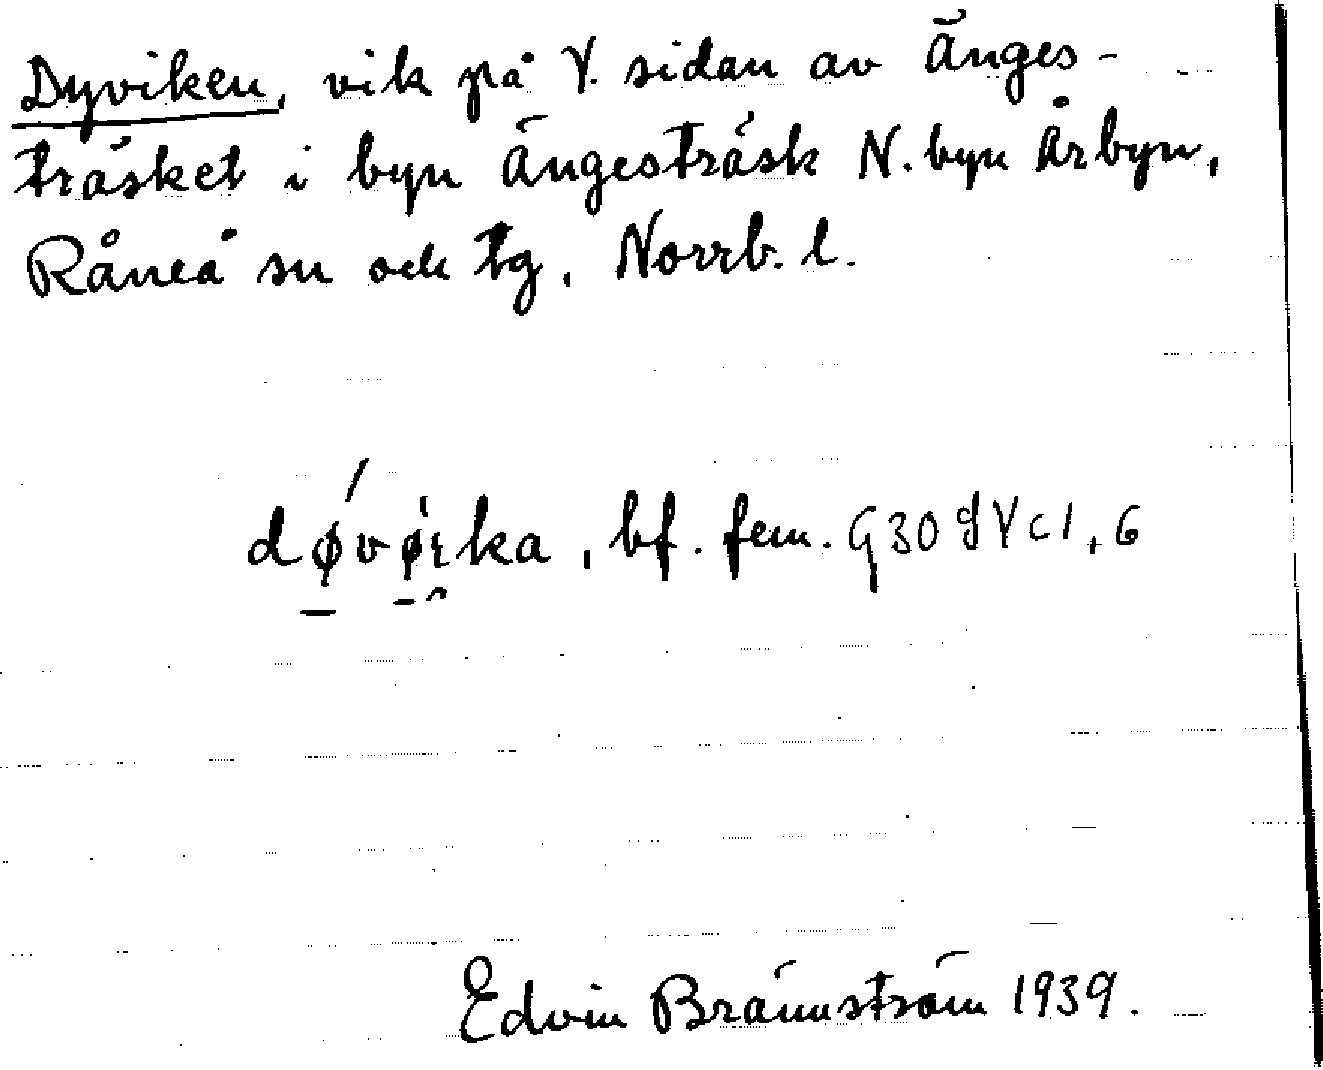 Dyviken, vik på V. sidan av Änges-
träsket i byn Ängesträsk N. byn Årbyn,
Råneå sn och tg, Norrb. l.
bf. fem. G30 d V c 1, 6
Edvin Brännström 1939.